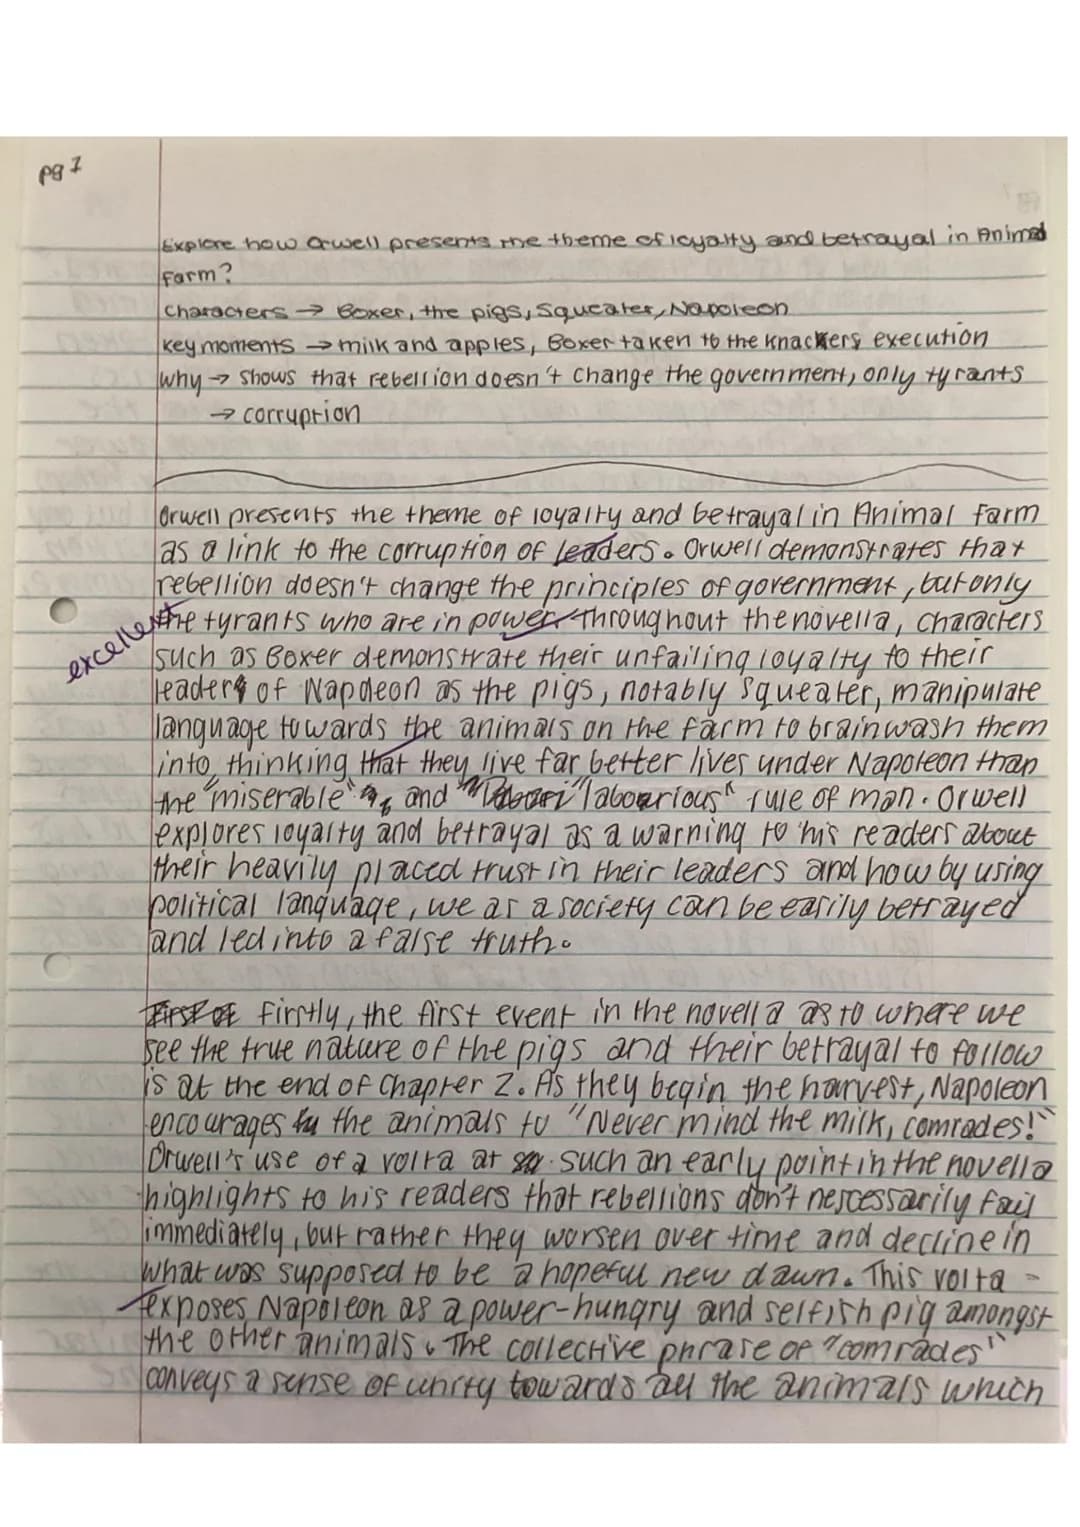 pg 1
Explore how Orwell presents the theme of loyalty and betrayal in Animal
Farm?
Characters → Boxer, the pigs, Squealer, Napoleon
key moments → milk and apples, Boxer taken to the knackers, execution
why → shows that rebellion doesn't change the government, only tyrants
→ corruption
Orwell presents the theme of loyalty and betrayal in Animal Farm
as a link to the corruption of leaders. Orwell demonstrates that
rebellion doesn't change the principles of government, but only
the tyrants who are in power. Throughout the novella, characters
excellent
such as Boxer demonstrate their unfailing loyalty to their
leader of Napoleon as the pigs, notably Squealer, manipulate
language towards the animals on the farm to brainwash them
into thinking that they live far better lives under Napoleon than
the "miserable" and "labourious" rule of man. Orwell
explores loyalty and betrayal as a warning to his readers about
their heavily placed trust in their leaders and how by using
political language, we as a society can be easily betrayed
and led into a false truth.
Firstly, the first event in the novella as to where we
see the true nature of the pigs and their betrayal to follow
is at the end of Chapter 2. As they begin the harvest, Napoleon
encourages the animals to "Never mind the milk, comrades!"
Orwell's use of a volta at such an early point in the novella
highlights to his readers that rebellions don't nescessarily fail
immediately, but rather they worsen over time and decline in
what was supposed to be a hopeful new dawn. This volta
exposes Napoleon as a power-hungry and selfish pig amongst
the other animals. The collective phrase of "comrades"
conveys a sense of unity towards all the animals which